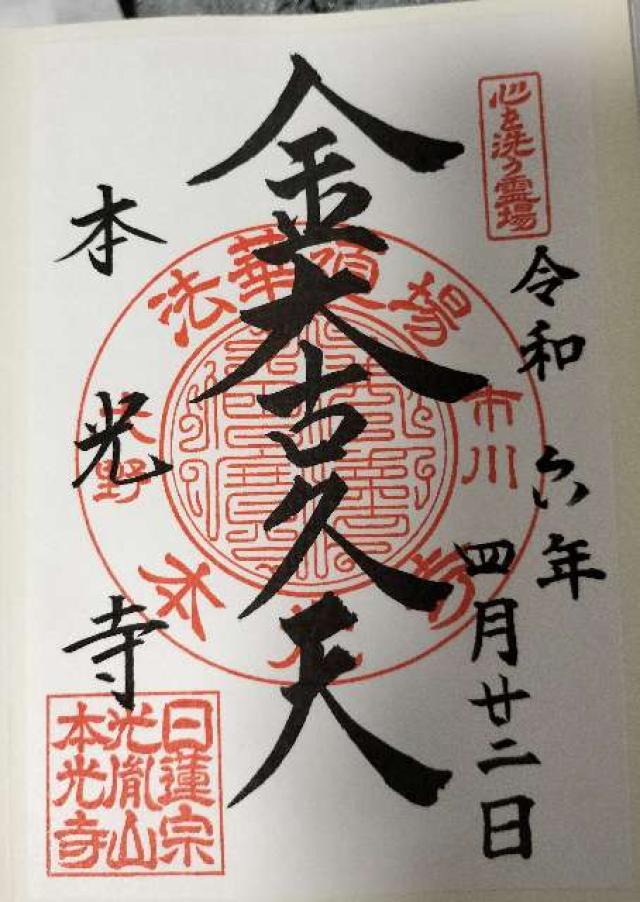 心を洗う霊場
令和六年
四月廿二日
金大古久天
法華道場
市川
大野
本光寺
本光寺
日蓮宗
光胤山
本光寺